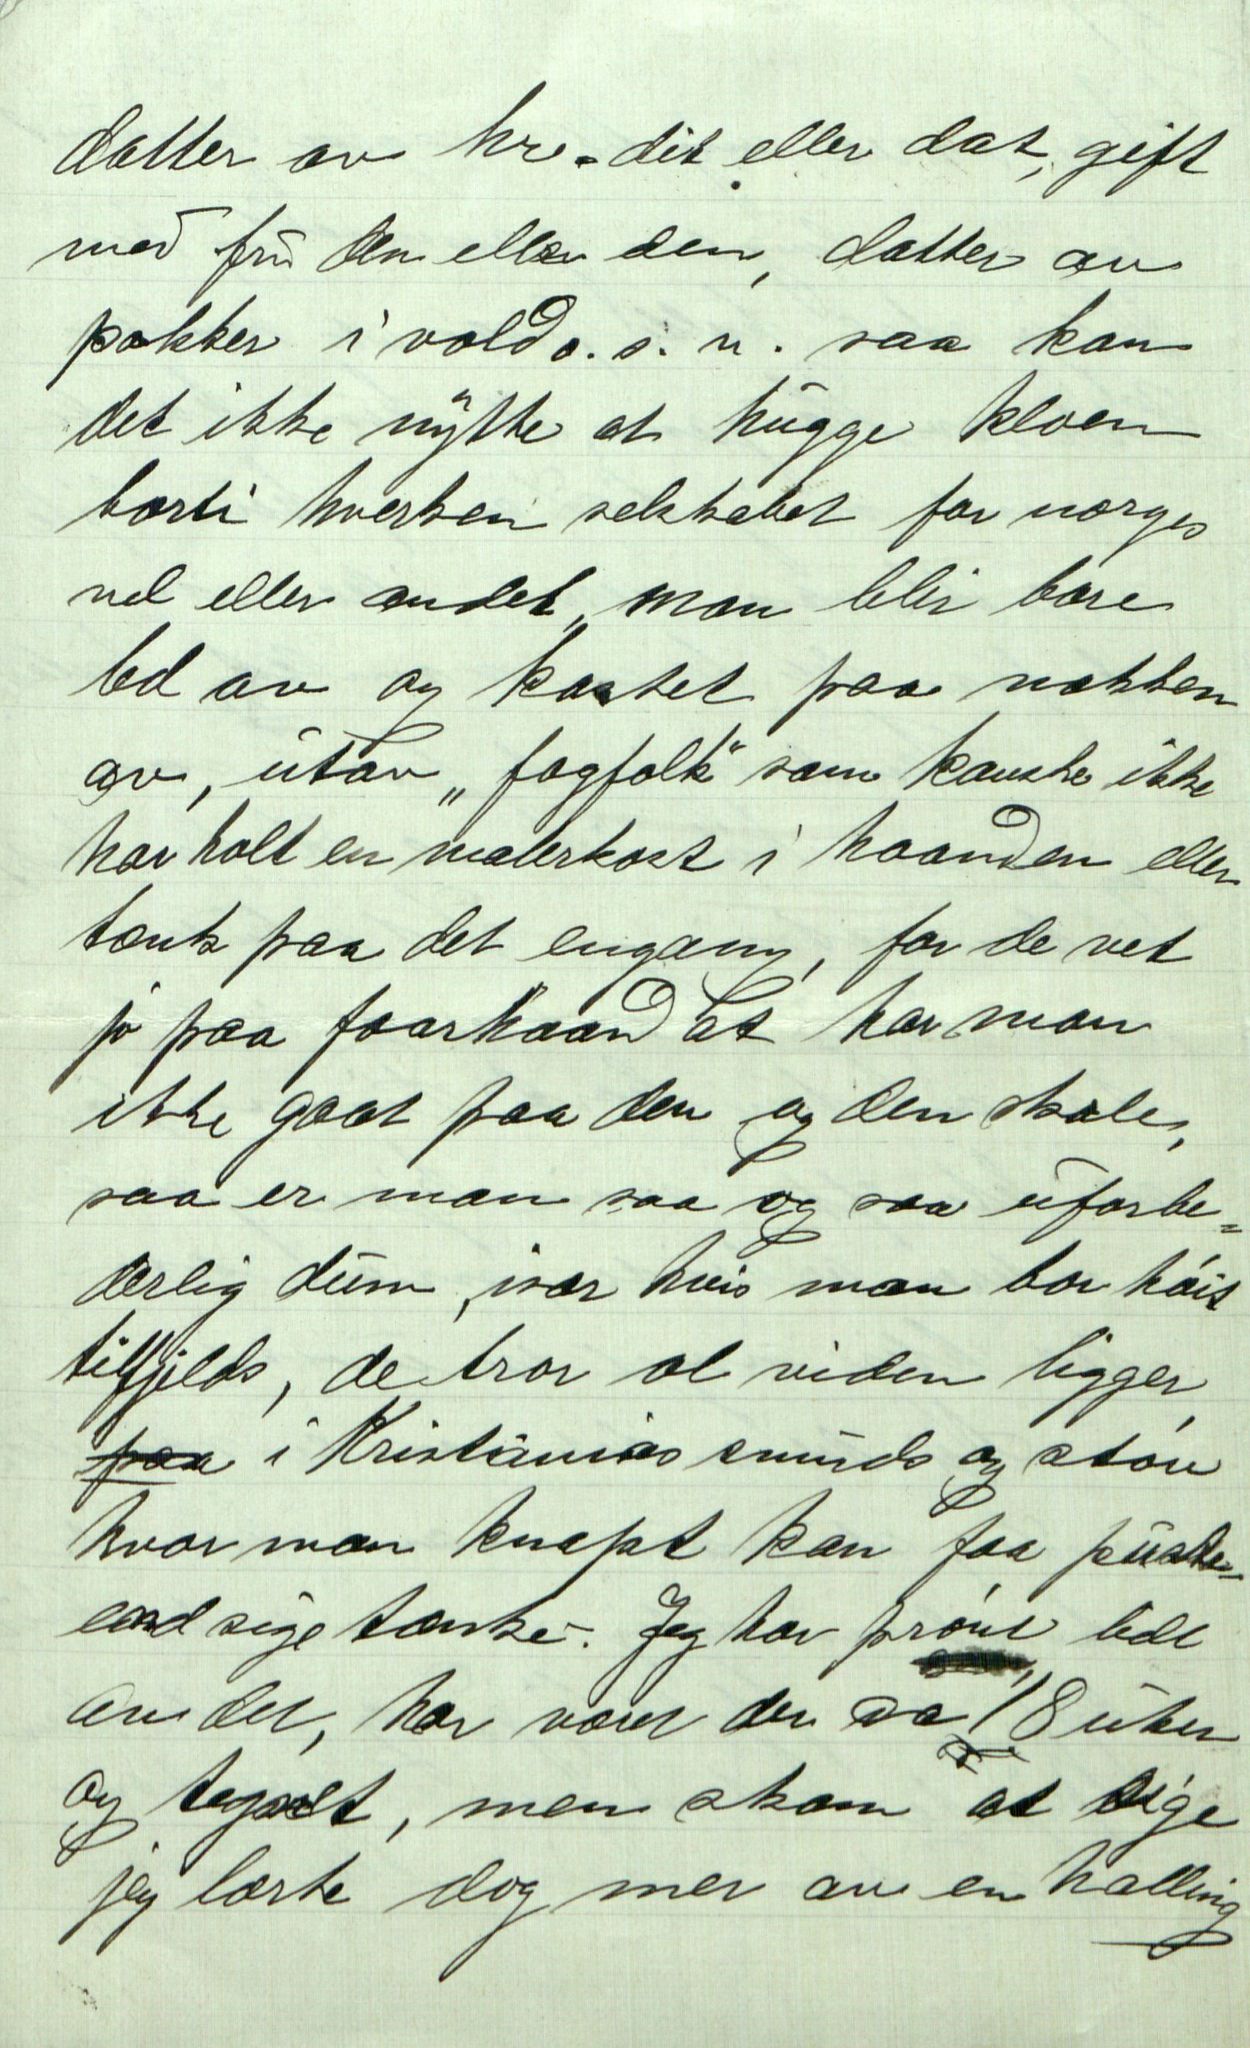 datter av hr. dit eller dat, gift
med frü den eller den, datter av
pokker i vold o. s. v. saa kan
det ikke nÿtte at hügge kloen
borti hverken selskabet for norges
vel eller andet, man blir bare
led av og kastet paa nakken
av, ütav „fagfolk" som kanske ikke
har holt en malerkost i haanden eller
tænk paa det engang, for de vet
jo paa foorhaand at har man
ikke gaat paa den og den skole,
saa er man saa og saa üforbe=
derlig düm, især hvis man bor høit
tilfjelds, de tror al viden ligger
paa i Kristianias smüds og støv
hvor man knapt kan faa püste
endsige tænke. Jeg har prøvet lidt
av det, har været der ca 18 üker
og tegnet, men skam at sige
jeg lærte dog mer av en halling